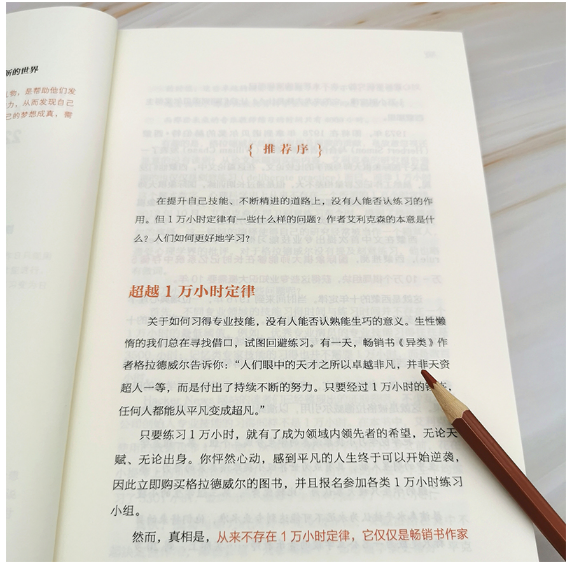 新的世界
物，是帮助他们发
力、从而发现自己
己的梦想成真，需
{ 推荐序 }
在提升自己技能、不断精进的道路上，没有人能否认练习的作
用。但1万小时定律有一些什么样的问题？作者艾利克森的本意是什
么？人们如何更好地学习？
超越1万小时定律
关于如何习得专业技能，没有人能否认熟能生巧的意义。生性懒
惰的我们总在寻找借口，试图回避练习。有一天，畅销书《异类》作
者格拉德威尔告诉你：“人们眼中的天才之所以卓越非凡，并非天资
超人一等，而是付出了持续不断的努力。只要经过1万小时的
任何人都能从平凡变成超凡。”
只要练习1万小时，就有了成为领域内领先者的希望，无论天
赋、无论出身。你怦然心动，感到平凡的人生终于可以开始逆袭，
因此立即购买格拉德威尔的图书，并且报名参加各类1万小时练习
小组。
然而，真相是，从来不存在1万小时定律，它仅仅是畅销书作家